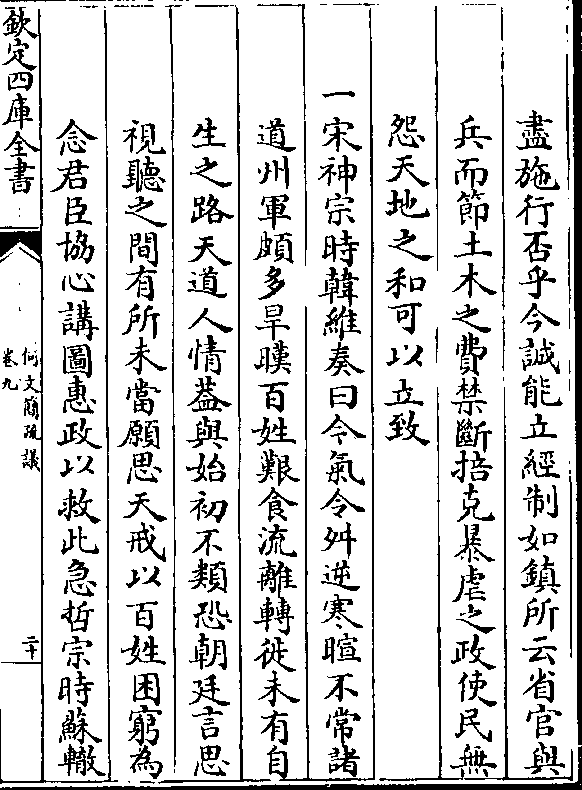 盡施行否乎今誠能立經制如鎮所云省官與
兵而節土木之費禁斷掊克暴虐之政使民無
怨天地之和可以立致
一宋神宗時韓維奏曰今氣令舛逆寒暄不常諸
道州軍頗多旱暵百姓艱食流離轉徙未有自
生之路天道人情葢與始初不類恐朝廷言思
視聽之間有所未當願思天戒以百姓困窮為
念君臣協心講圖惠政以救此急哲宗時蘇轍
欽定四庫全書
何文簡疏議
卷九
二十